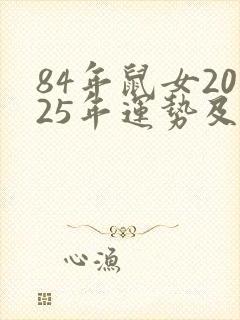 84年鼠女20
25年運势及
心漁